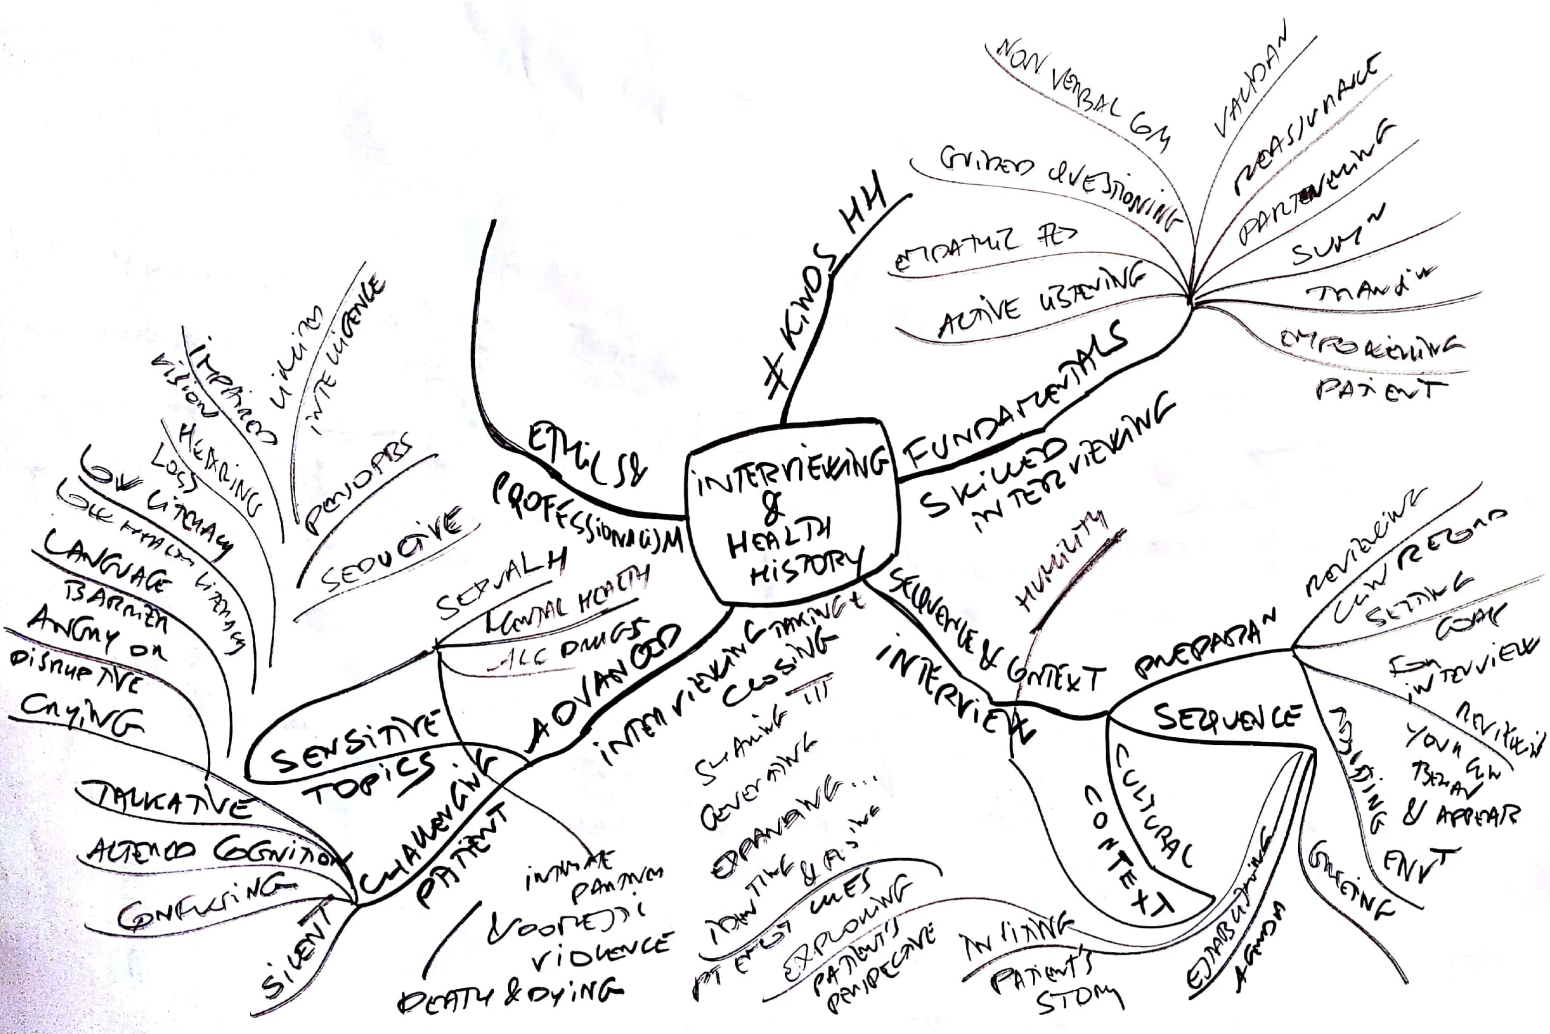 INTERVIEWING
&
HEALTH
HISTORY
≠ KINDS HH
FUNDAMENTALS
SKILLED
INTERVIEWING
NON VERBAL COM
GUIDED QUESTIONING
EMPATHIC RES
ACTIVE LISTENING
VALIDAN
REASSURANCE
PARTENERING
SUMN
EMPOWERING
PATIENT
SEQUENCE & CONTEXT
INTERVIEW
HUMILITY
PREPARAN
REVIEWING
CLIN RECORD
SETTING
GOAL
FOR
INTERVIEW
REVIEWIN
YOUR CLIN
BEHAV
& APPEAR
ADJUSTING
ENVT
SEQUENCE
GREETING
ESTABLISHING
AGENDA
INVITING
PATIENT'S
STORY
EXPLORING
PATIENT'S
PERSPECTIVE
IDENTIFYING &
PT EMOT CUES
EXPANDING...
GENERATING
SHARING III
CLOSING
TAKING +
CULTURAL
CONTEXT
ADVANCED
INTERVIEWING
SENSITIVE
TOPICS
SEXUAL H
MENTAL HEALTH
ALC DRUGS
INTIMATE
PARTNER
DOMESTI
VIOLENCE
DEATH & DYING
CHALLENGING
PATIENT
SILENT
CONFUSING
ALTERED COGNITION
TALKATIVE
CRYING
ANGRY OR
DISRUPTIVE
LANGUAGE
BARRIER
LOW HEALTH LITERACY
LOW LITERACY
HEARING
LOSS
IMPAIRED
VISION
LIMITED
INTELLIGENCE
PERSO PBS
SEDUCTIVE
ETHICS &
PROFESSIONALISM